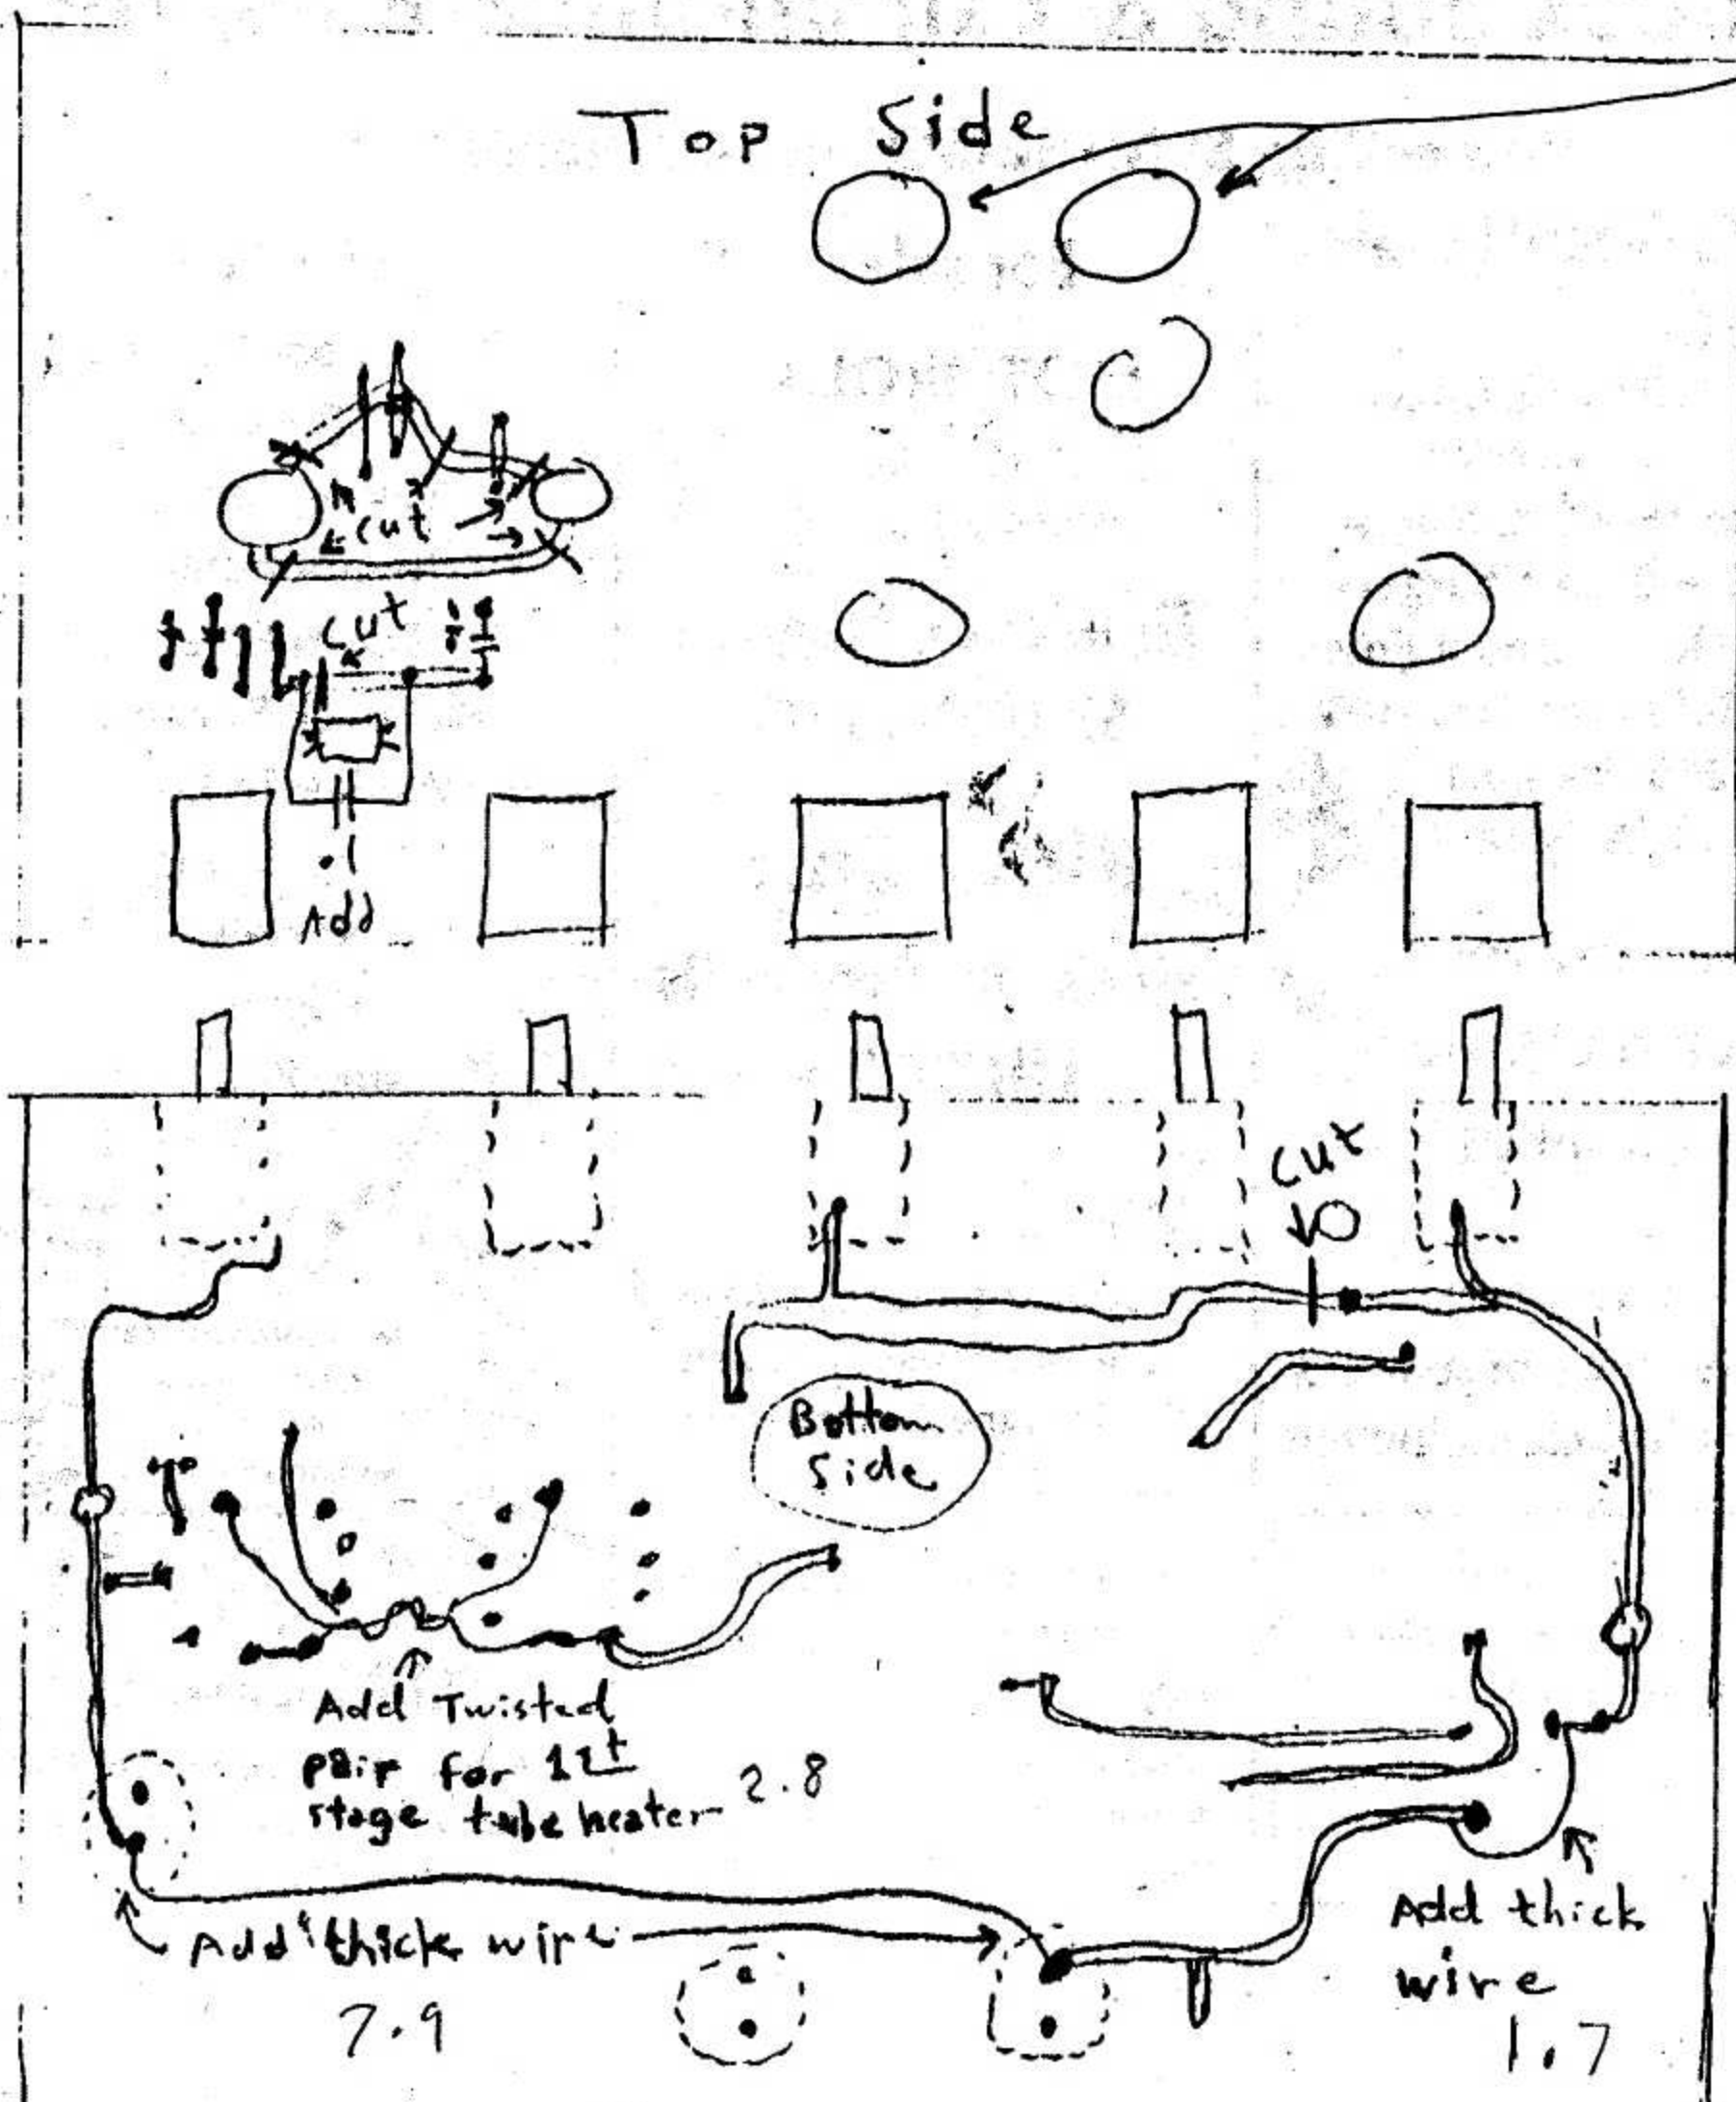 Top Side
cut
cut
.1
Add
cut
Bottom
Side
Add Twisted
pair for 1st
stage tube heater 2.8
Add thick wire
7.9
Add thick
wire
1.7